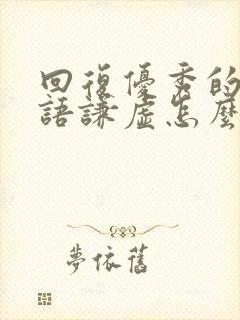 回復優秀的
語謙虛怎麼
夢依舊